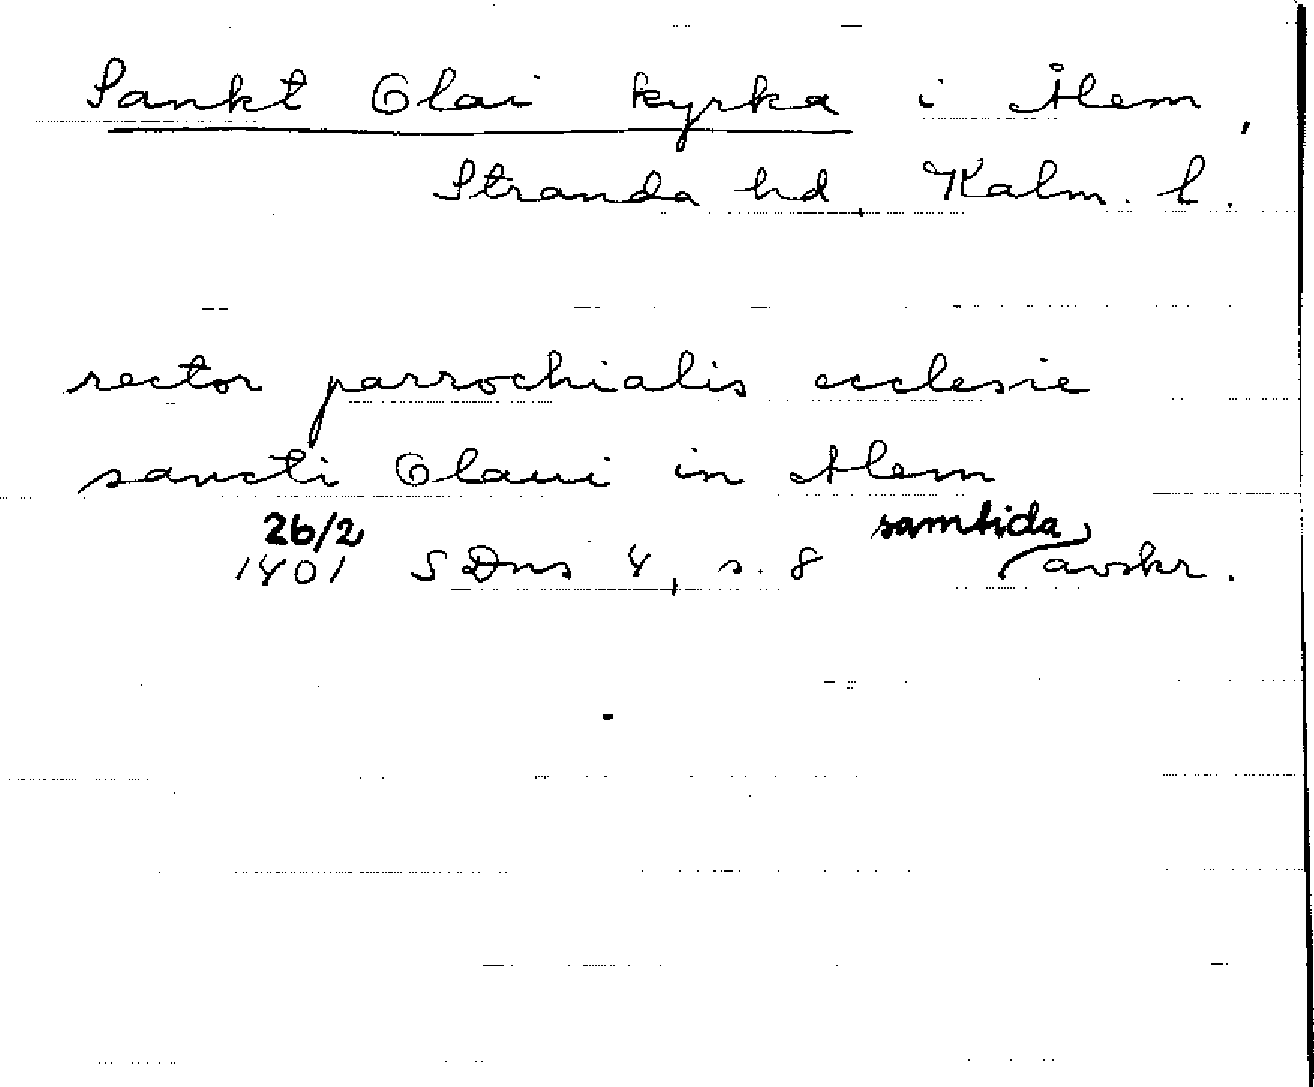 Sankt Olai kyrka i Ålem,
Stranda hd, Kalm. l.
rector parrochialis ecclesie
sancti Olaui in Alem
26/2 samtida
1401 SDns 4, s. 8 avskr.